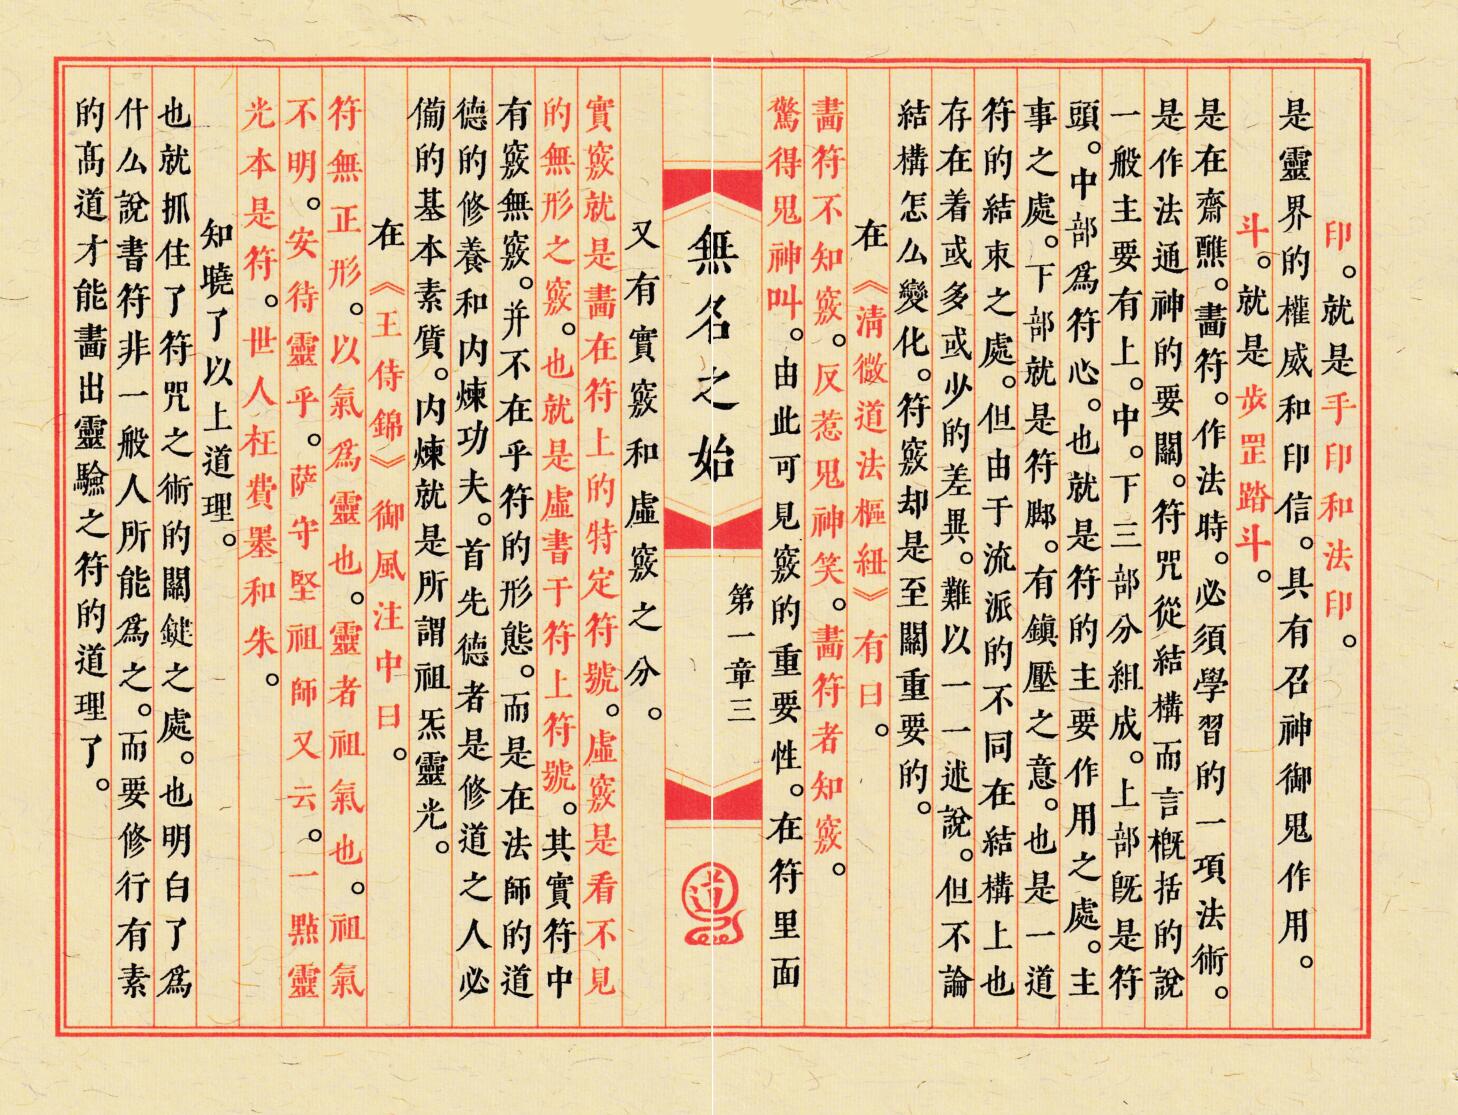 印。就是手印和法印。
是靈界的權威和印信。具有召神御鬼作用。
斗。就是步罡踏斗。
是在齋醮。畫符。作法時。必須學習的一項法術。
是作法通神的要關。符咒從結構而言概括的說
一般主要有上。中。下三部分組成。上部既是符
頭。中部為符心。也就是符的主要作用之處。主
事之處。下部就是符脚。有鎮壓之意。也是一道
符的結束之處。但由于流派的不同在結構上也
存在着或多或少的差異。難以一一述說。但不論
結構怎么變化。符竅却是至關重要的。
在《清微道法樞紐》有曰。
畫符不知竅。反惹鬼神笑。畫符者知竅。
驚得鬼神叫。由此可見竅的重要性。在符里面
無名之始
第一章三
道
又有實竅和虛竅之分。
實竅就是畫在符上的特定符號。虛竅是看不見
的無形之竅。也就是虛書于符上符號。其實符中
有竅無竅。并不在乎符的形態。而是在法師的道
德的修養和内煉功夫。首先德者是修道之人必
備的基本素質。内煉就是所謂祖炁靈光。
在《王侍錦》御風注中曰。
符無正形。以氣為靈也。靈者祖氣也。祖氣
不明。安待靈乎。萨守堅祖師又云。一點靈
光本是符。世人枉費墨和朱。
知曉了以上道理。
也就抓住了符咒之術的關鍵之處。也明白了為
什么說書符非一般人所能為之。而要修行有素
的髙道才能畫出靈驗之符的道理了。